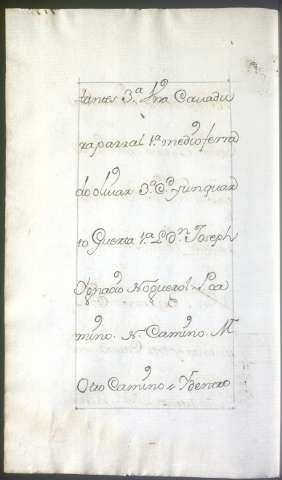 tantes 3.ª Una Cavadu
ra parral 1.ª medio ferra
do olivar 3.ª C.º y un quar
to Guerta 1.ª L. D.n Joseph
Ygnacio Noguerol P. ca
mino. N. Camino. M.
Otro Camino = Ydentro